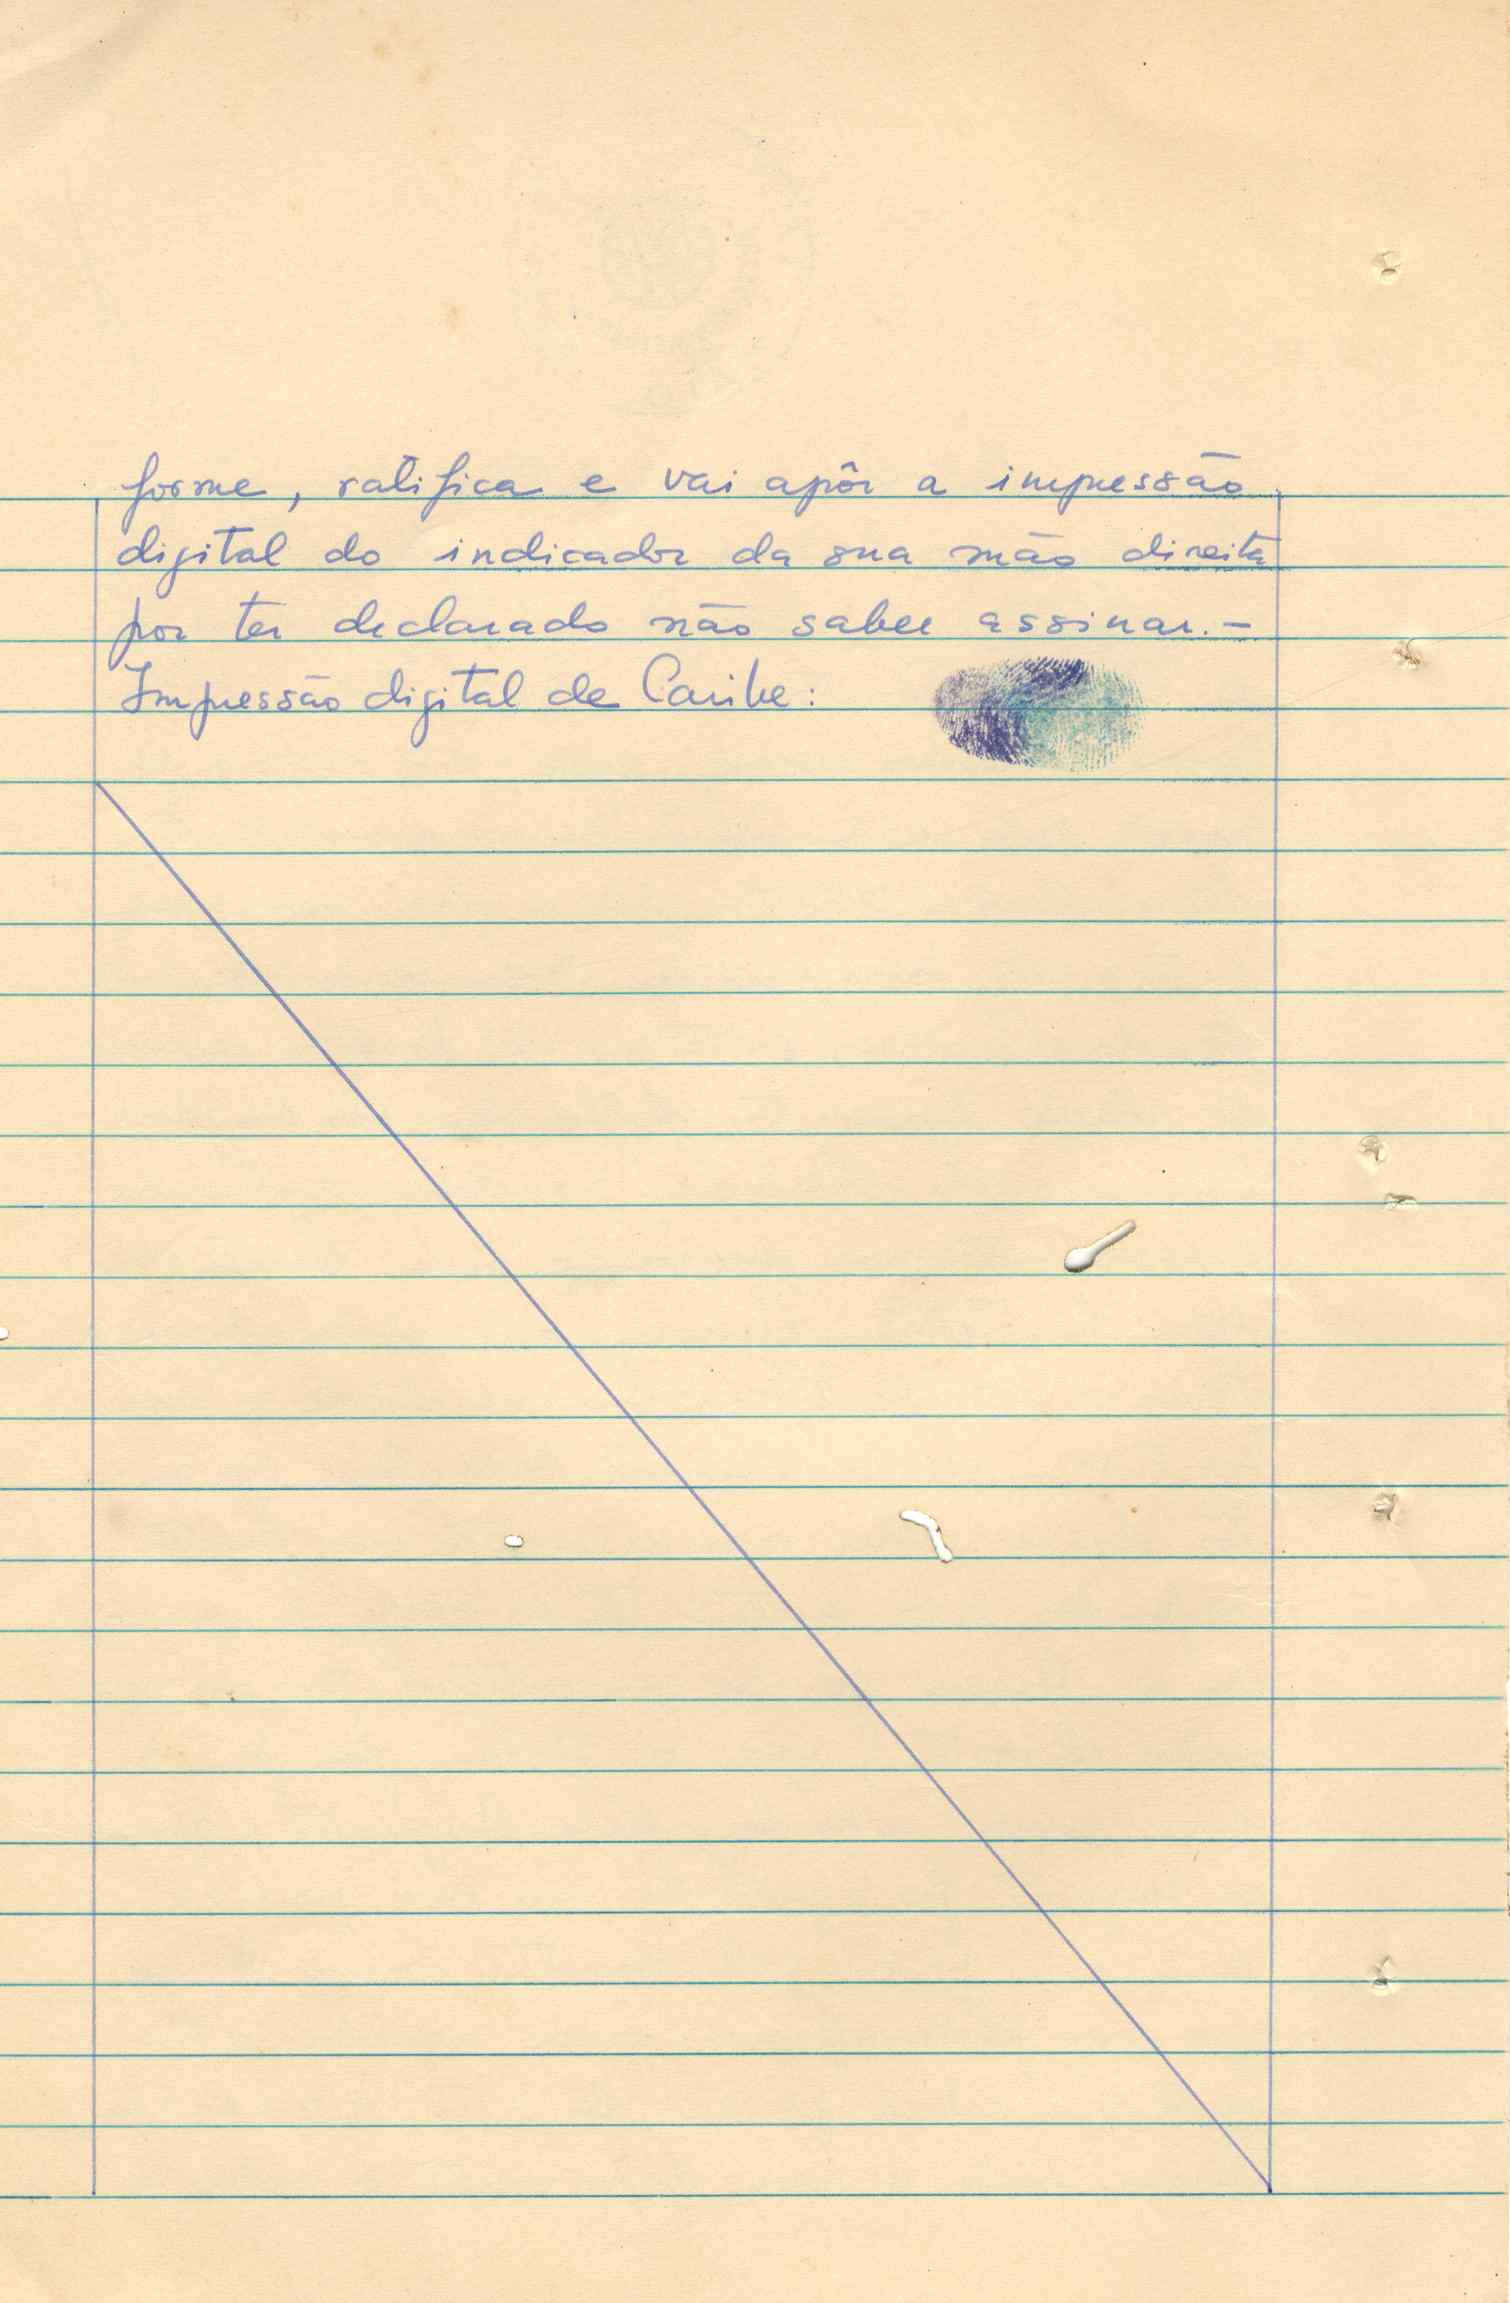 forme, ratifica e vai apôr a impressão
digital do indicador da sua mão direita
por ter declarado não saber assinar.-
Impressão digital de Caribe: